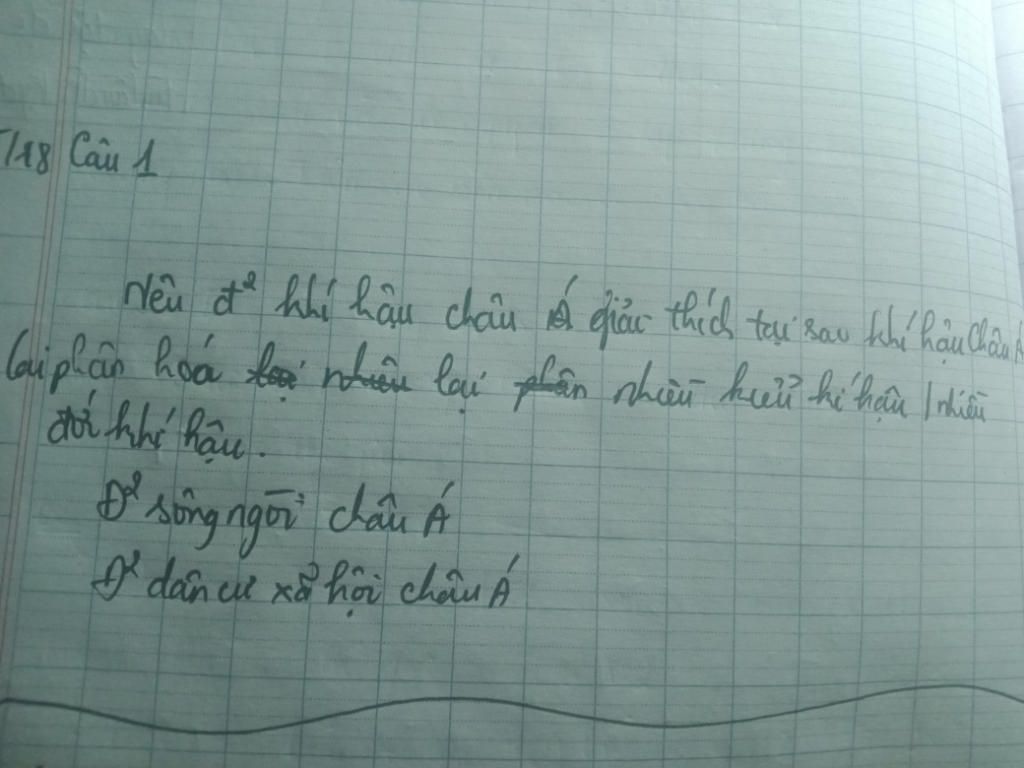 T/18 Câu 1
Nêu đ² khí hậu châu Á giải thích tại sao khí hậu châu Á
lại phân hoá lại nhiều kiểu khí hậu / nhiều
đới khí hậu.
Đ² sông ngòi châu Á
Đ² dân cư xã hội châu Á